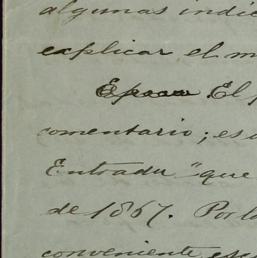 algunas indi
explicar el m
El
comentario; es
Entrada "que
de 1867. Por l
conveniente es